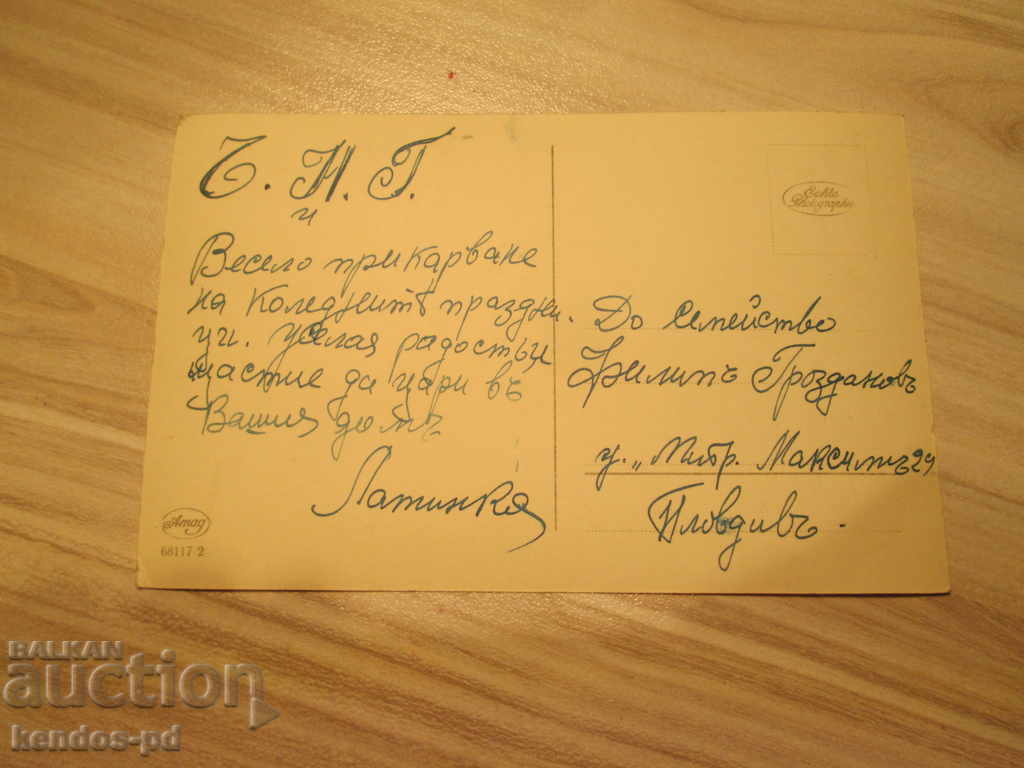 Ч. Н. Г.
и
Весело прикарване
на Коледнитѣ праздни.
ци. Желая радость и
щастие да цари въ
Вашия домъ
Латинка
Amag
68117 2
До Семейство
Филипъ Грозданов
ц. „Митр. Максимъ 29
Пловдивъ.
Echte
Photographie
BALKAN
auction
kendos-pd